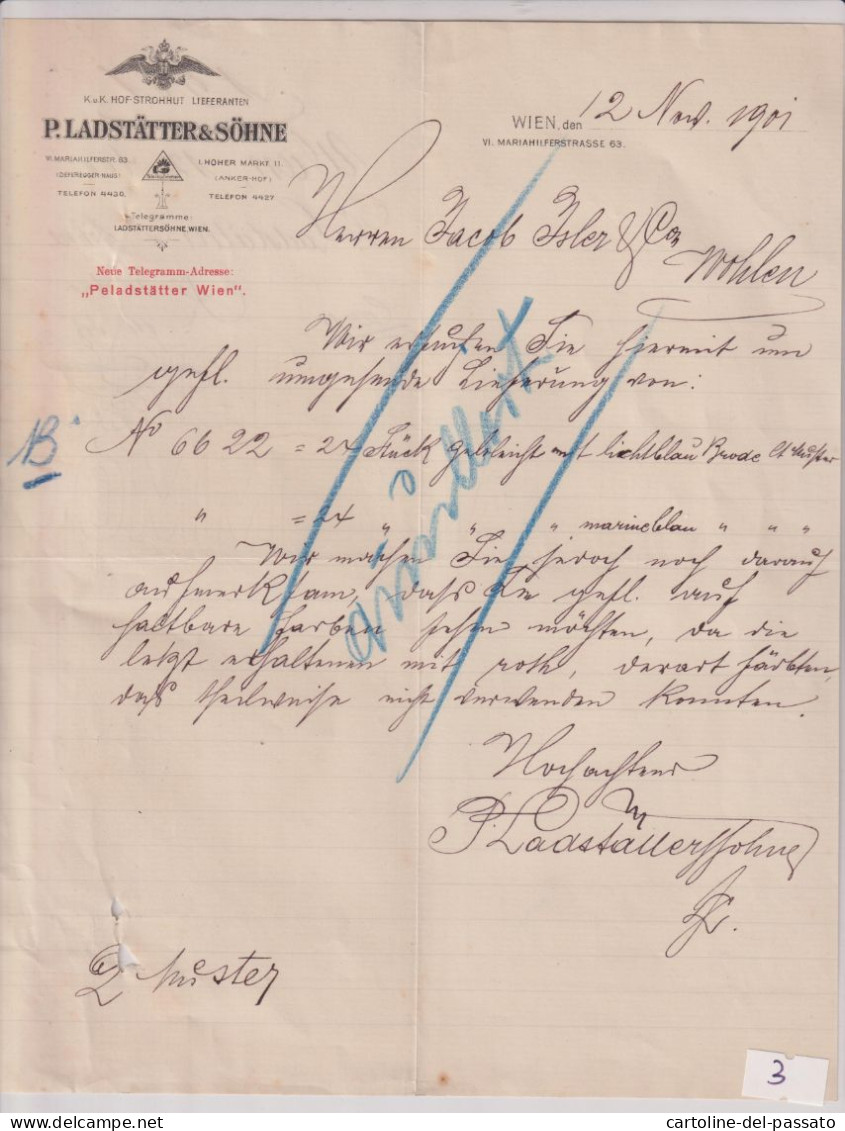 K.u.K. HOF-STROHHUT LIEFERANTEN
P. LADSTÄTTER & SÖHNE
VI. MARIAHILFERSTR. 63.
(DEFEREGGER HAUS)
TELEFON 4436.
I. HOHER MARKT 11.
(ANKER-HOF)
TELEFON 4427.
Telegramme:
LADSTÄTTERSÖHNE, WIEN.
Neue Telegramm-Adresse:
„Peladstätter Wien".
WIEN, den 12 Nov. 1901
VI. MARIAHILFERSTRASSE 63.
Herren Jacob Isler & Co
Wohlen
Wir ersuchen Sie hiermit um
gefl. umgehende Lieferung von:
No 6622 = 24 Stück gebleicht mit lichtblau Brode lt Muster
" = 24 " " " marineblau " " "
Wir machen Sie jedoch noch darauf
aufmerksam, dass Sie gefl. auf
haltbare Farben sehen möchten, da die
letzt erhaltenen mit roth, derart färbten,
dass theilweise nicht verwenden konnten.
Hochachtend
P. Ladstätter & Söhne
2 Muster
13
3
cartoline-del-passato